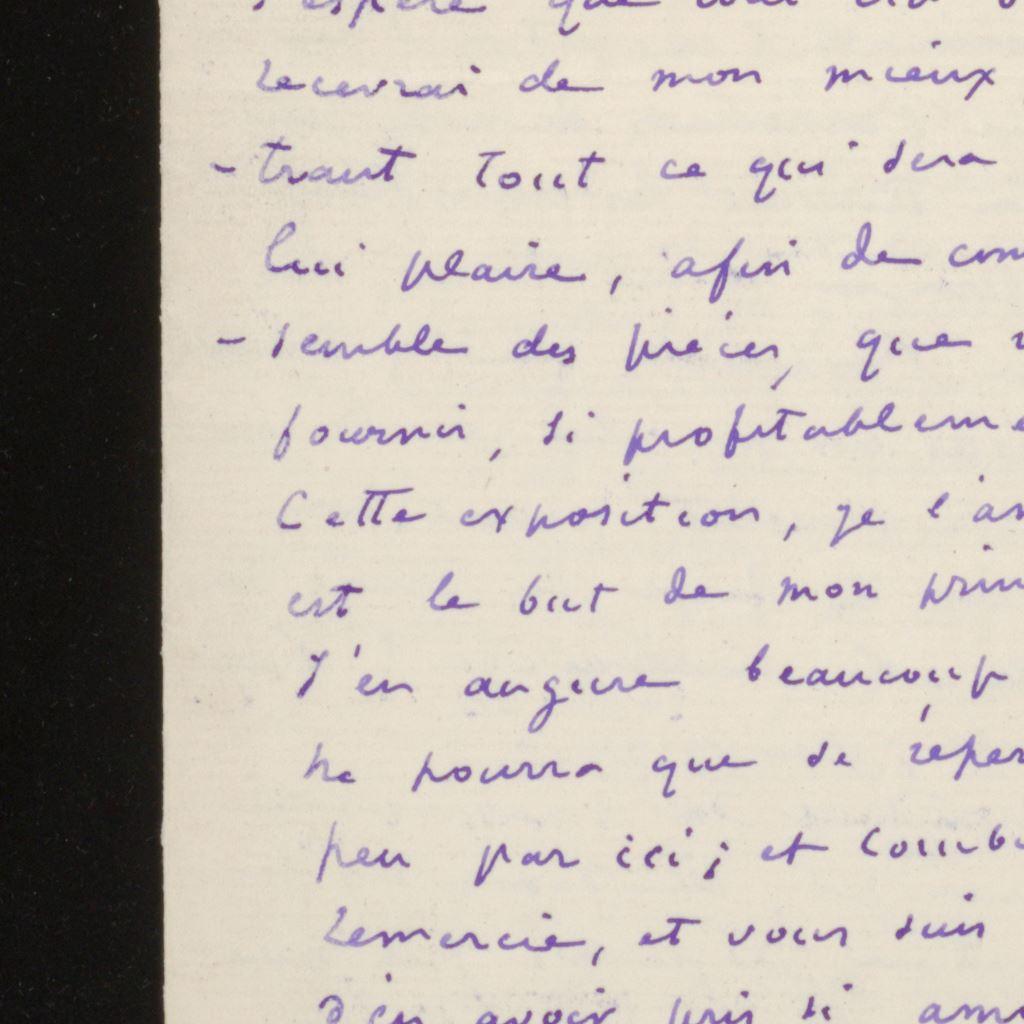 J'espère que tout
recevrai de mon mieux
-trant tout ce qui sera
lui plaire, afin de com
-semble des pièces, que
fournir, si profitableme
Cette exposition, je l'as
est le but de mon prin
J'en augure beaucoup
ne pourra que se réper
peu par ici; et comb
remercie, et vous suis
d'en avoir pris si ami